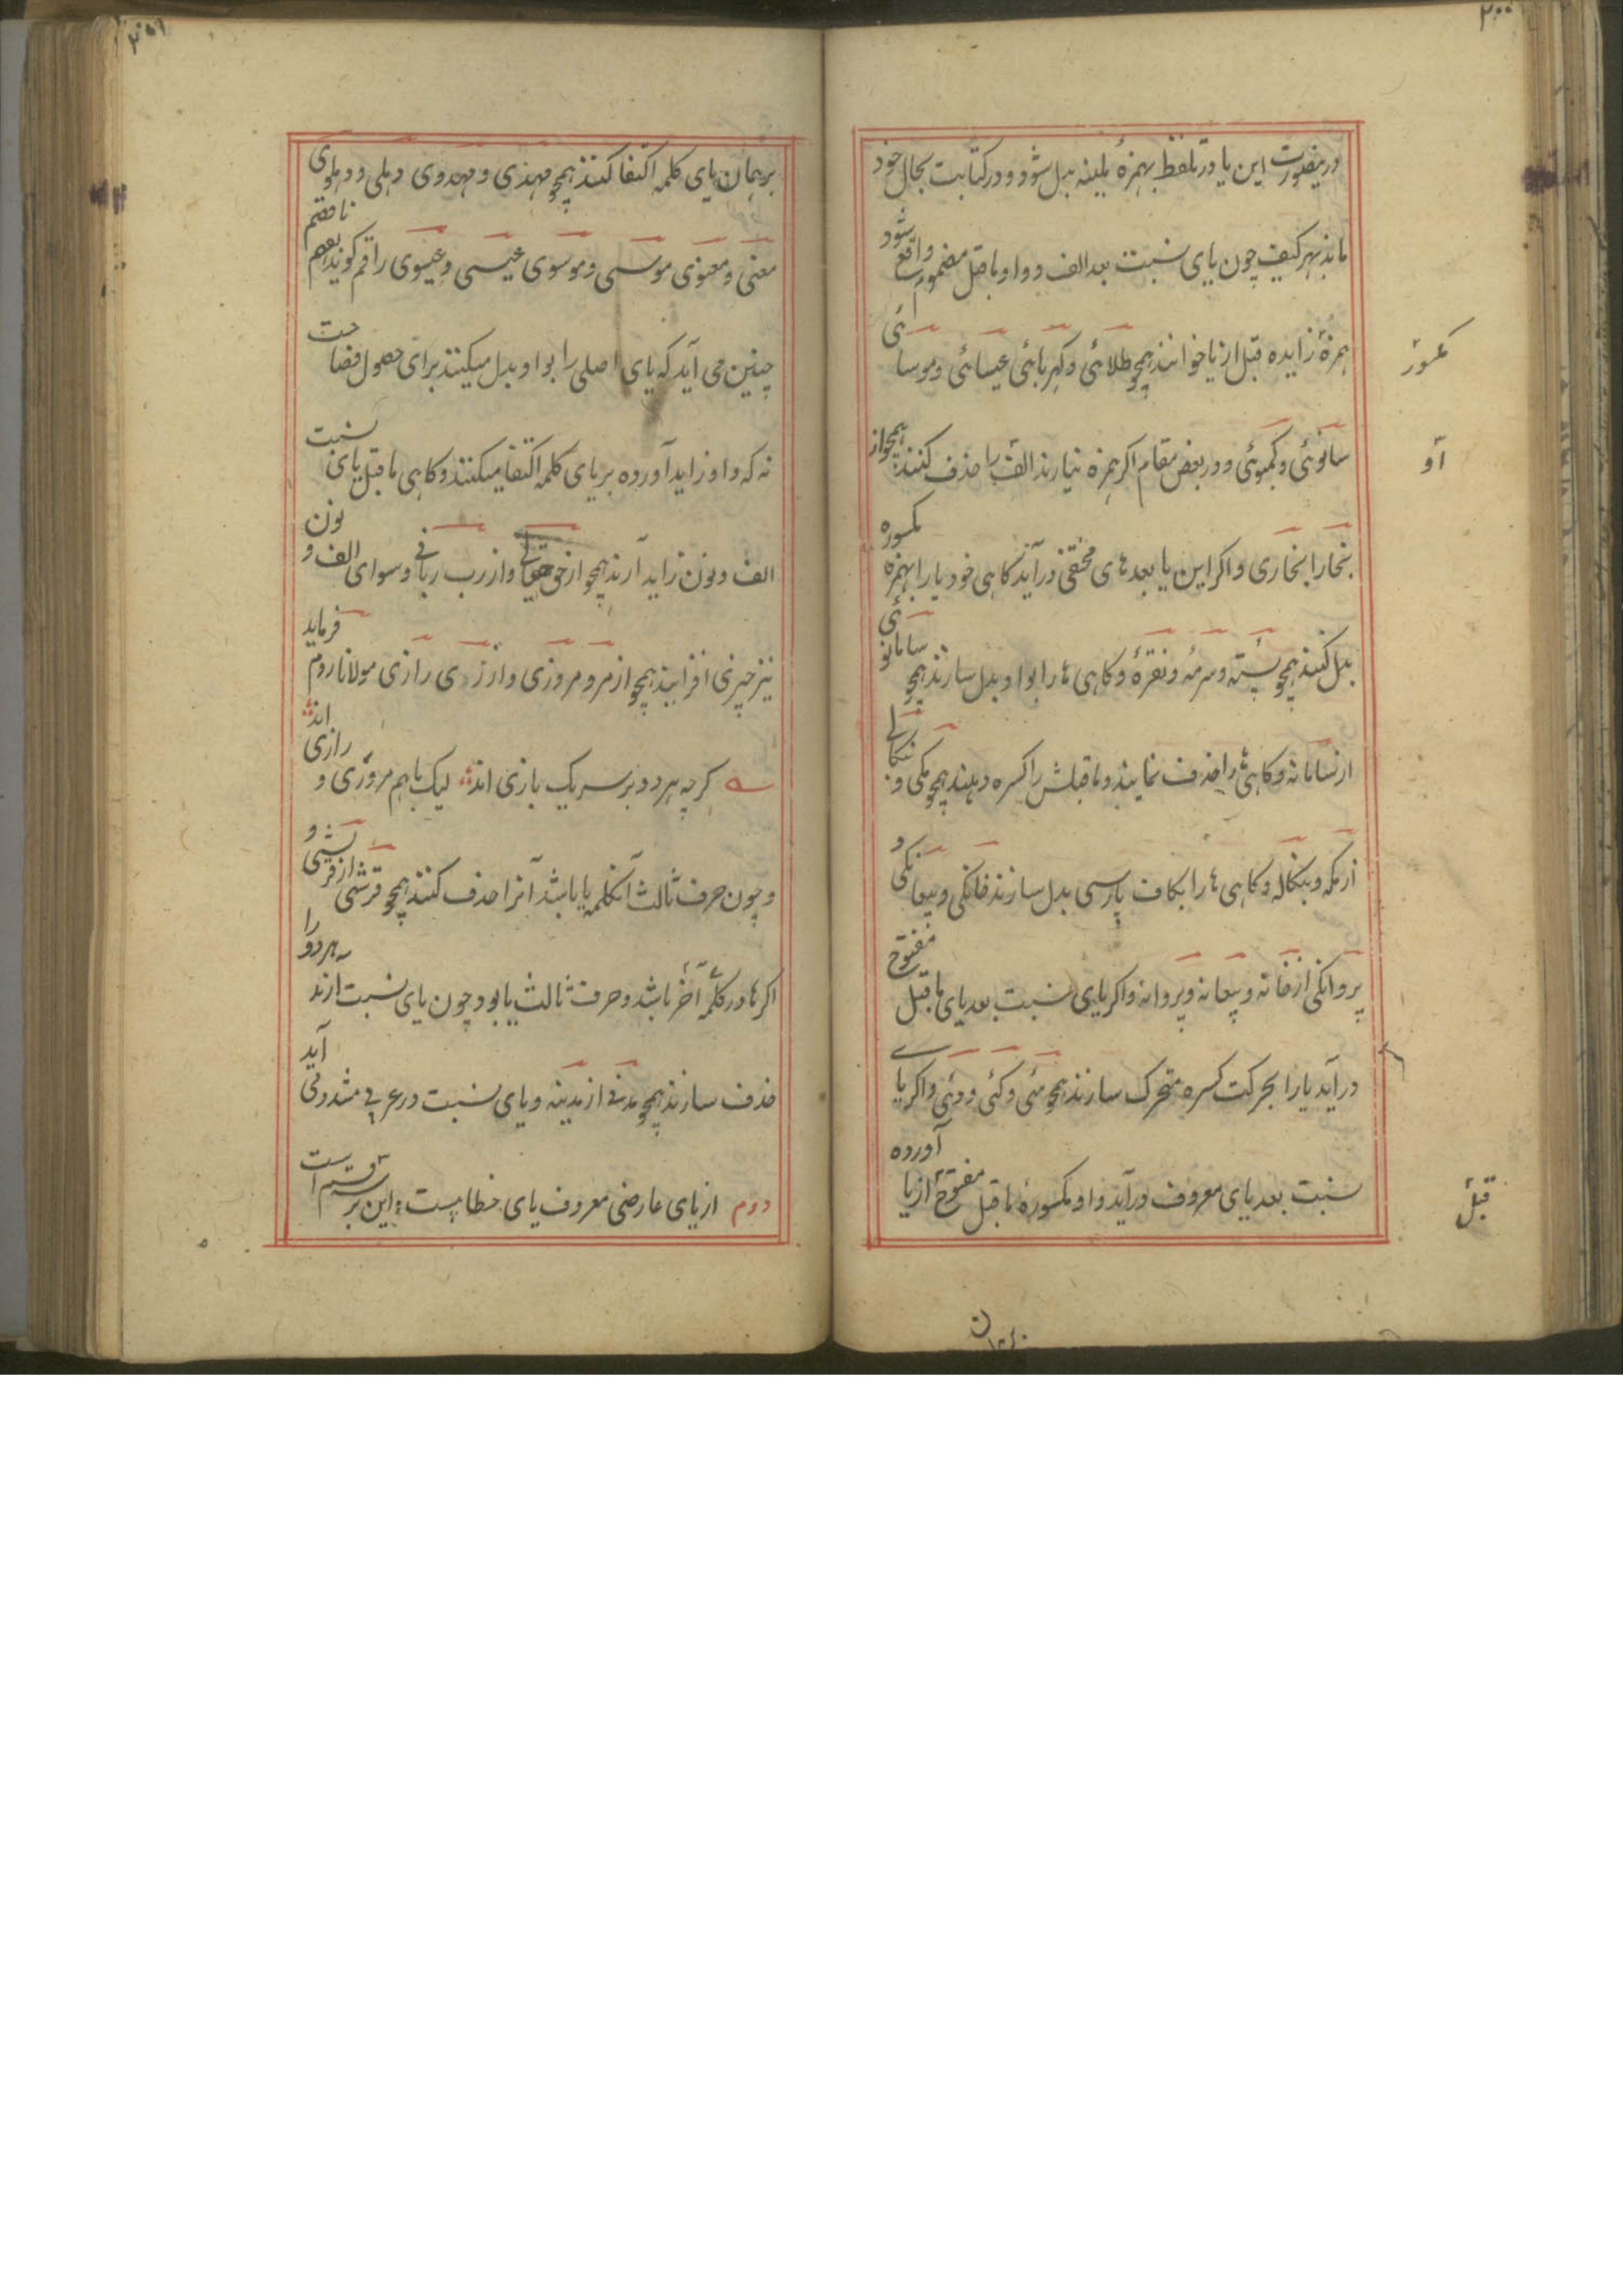 ۲۰۰
درینصورت این یا در تلفظ بهمزهٔ ملینه بدل شود و در کتابت بحال خود
ماند بهر کیف چون یای نسبت بعد الف و واو ماقبل مضموم واقع شود
همزهٔ زایده قبل از یا خوانند همچو طلائی و کهربائی عیسائی و موسائی
مکسور
سانوئی و کمبوئی و در بعض مقام اگر همزه نیارند الف را حذف کنند همچو از
او
بخارا بخاری و اگر این یا بعد های مختفی در آید کاهی خود یا را بهمزه مکسوره
بدل کنند همچو پستهٔ و سرمهٔ و نقرهٔ و کاهی ها را بواو بدل سازند همچو سامانوئی
از سامانه و کاهی ها را حذف نمایند و ماقبلش را کسره دهند همچو مکی و بنکالی
از مکه و بنکاله و کاهی ها را بکاف پارسی بدل سازند خانکی و پیغانکی و
پروانکی از خانه و پیغانه و پروانه و اکر یای نسبت بعد یای ماقبل مفتوح
در آید یا را بحرکت کسره متحرک سازند همچو مئی و کئی و وئی و اکر یای
نسبت بعد یای معروف در آید واو مکسورهٔ ماقبل مفتوح از یا آورده
قبل
۲۰۱
بر همان یای کلمه اکتفا کنند همچو مهدی و مهدوی دهلی و دهلوی
معنی و معنوی موسی و موسوی عیسی و عیسوی راقم کوید بفهم ناقصم
چنین می آید که یای اصلی را بواو بدل میکنند برای حصول فصاحت
نه که واو زاید آورده بر یای کلمه اکتفا میکنند و کاهی ماقبل یای نسبت
الف و نون زاید آرند همچو از حق حقانی و از رب ربانی و سوای الف و نون
نیز چیزی افزایند همچو از مرو مروزی و از ری رازی مولانا روم فرماید
کرچه هر دو بر سر یک بازی اند لیک باهم مروزی و رازی اند
و چون حرف ثالث آنکلمه یا باشد آنرا حذف کنند همچو قرشی از قریشی و
اکر ها در کلمه آخر باشد و حرف ثالث یا بود چون یای نسبت ارند هر دو را
حذف سازند همچو مدنی از مدینه و یای نسبت در عربی مشدد می آید
دوم از یای عارضی معروف یای خطابیست این بر قسم است